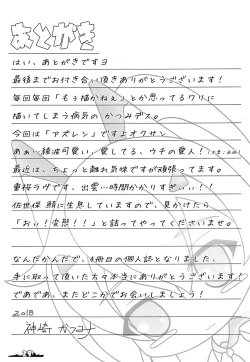 あとがき
はい、あとがきですヨ
最後までお付き合い頂きありがとうございます！
毎回毎回「もう描かねぇ」とか思ってるワリに
描いてしまう病気の かつみデス。
今回は「アズレン」ですよオクサン
あぁ…綾波可愛い、愛してる、ウチの愛人だ！
最近は、ちょっと離れ気味ですが頑張ってます。
重桜ラヴです、出雲…時間かかりすぎぃぃ！！
佐世保鯖に生息していますので、見かけたら
「おぃ！変態！！」と詰ってやってくださいませ。
なんだかんだで、8冊目の個人誌となりました、
手に取って頂いた方々本当にありがとうございます！
であであ、またどこかでお会いしましょう！
2018